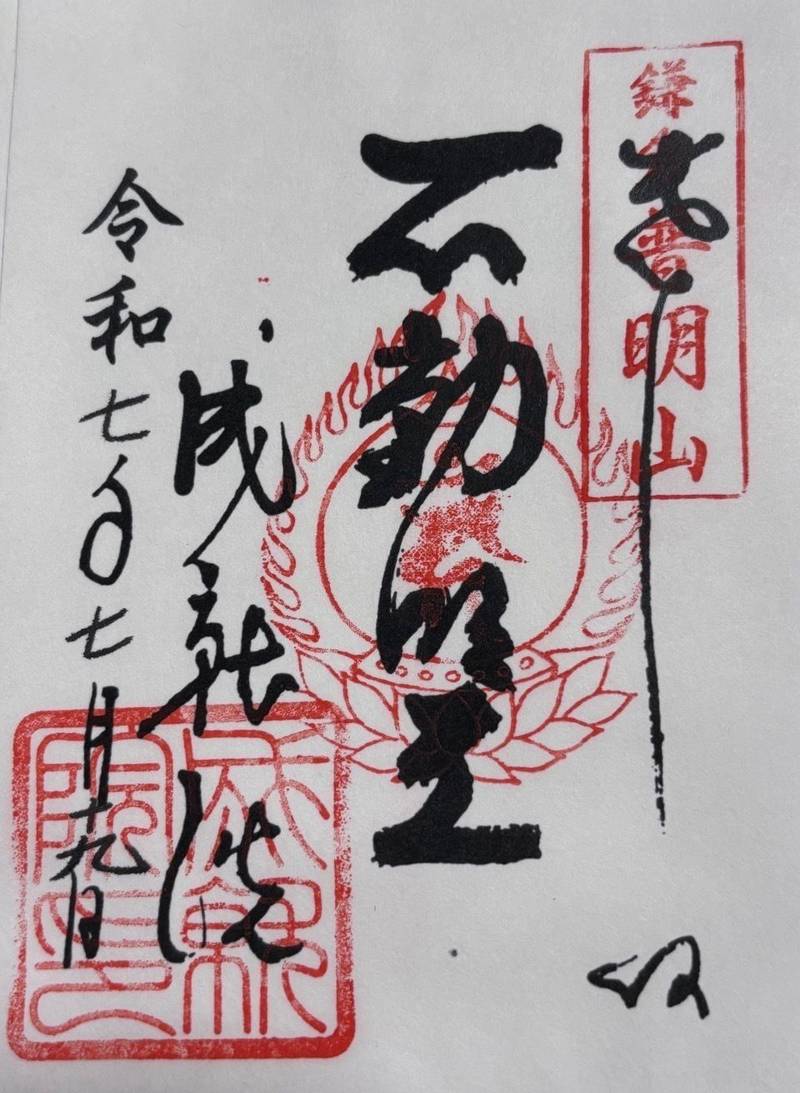 鎌倉普明山
奉拝
不動明王
成就院
令和七年七月十九日
成就
院印